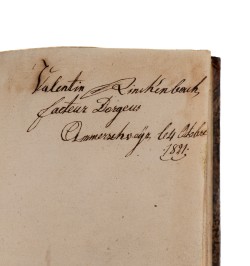 Valentin Rinckenbach,
facteur Dorgeus
Ammerschwÿr le 4 Octobre
1821.